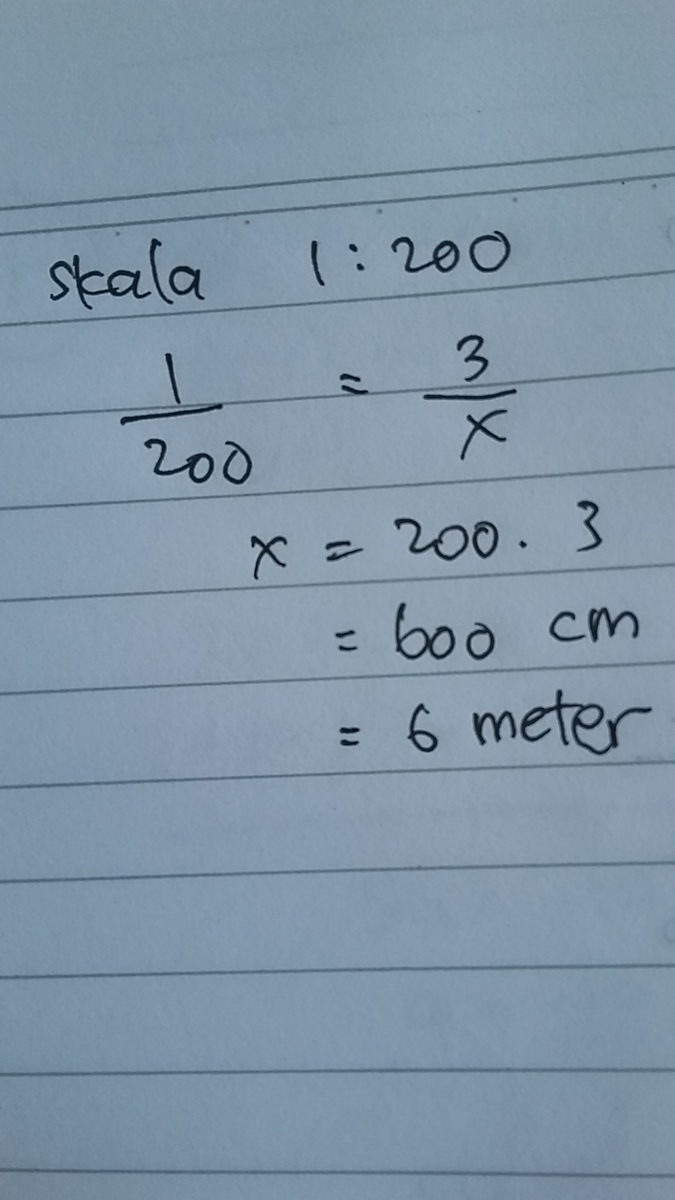 skala 1 : 200
1/200 = 3/x
x = 200 . 3
= 600 cm
= 6 meter